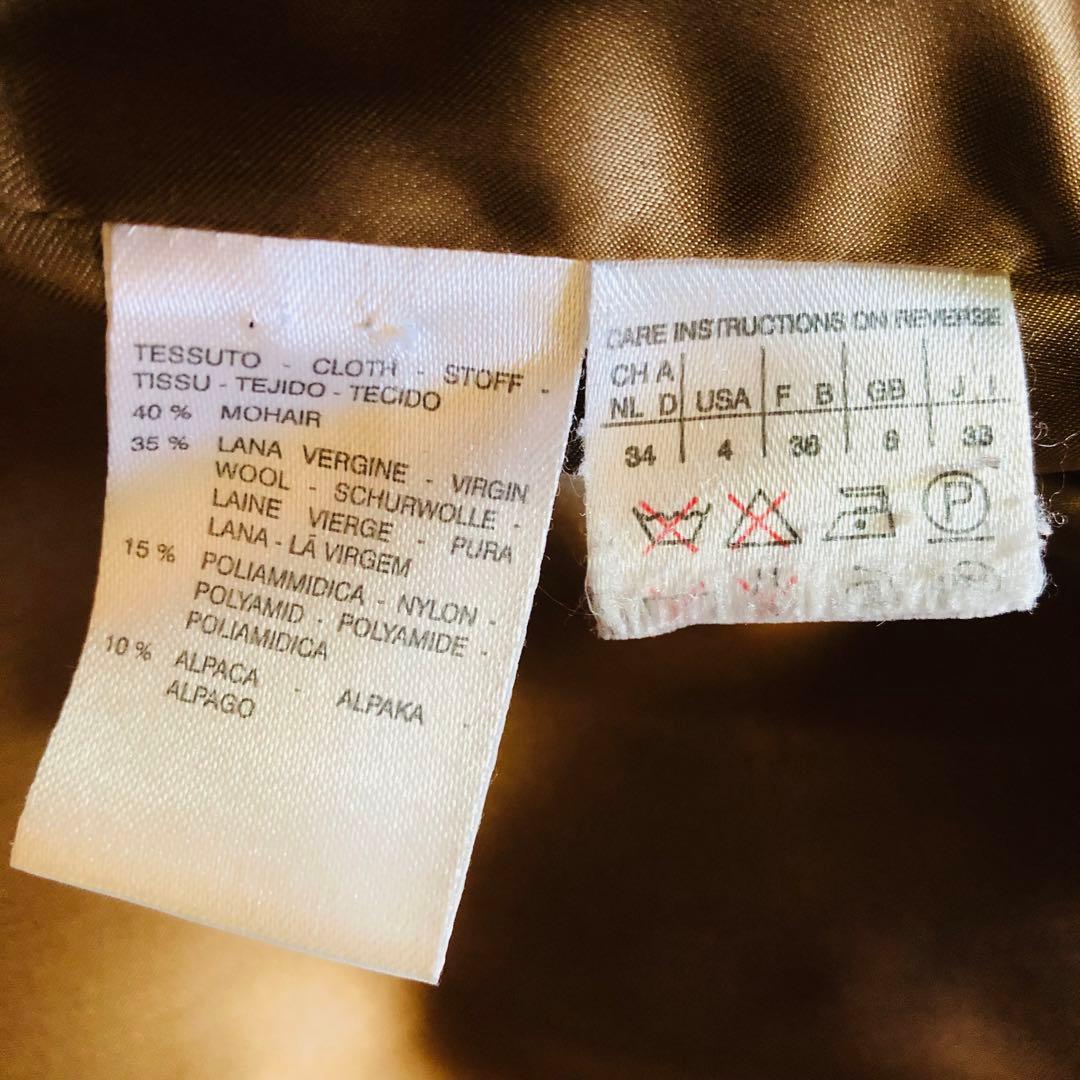 TESSUTO - CLOTH - STOFF -
TISSU - TEJIDO - TECIDO
40 % MOHAIR
35 % LANA VERGINE - VIRGIN
WOOL - SCHURWOLLE -
LAINE VIERGE - PURA
LANA - LÃ VIRGEM
15 % POLIAMMIDICA - NYLON -
POLYAMID - POLYAMIDE -
POLIAMIDICA
10 % ALPACA - ALPAKA -
ALPAGO
CARE INSTRUCTIONS ON REVERSE
CH A
NL D USA F B GB J I
34 4 36 6 38
P